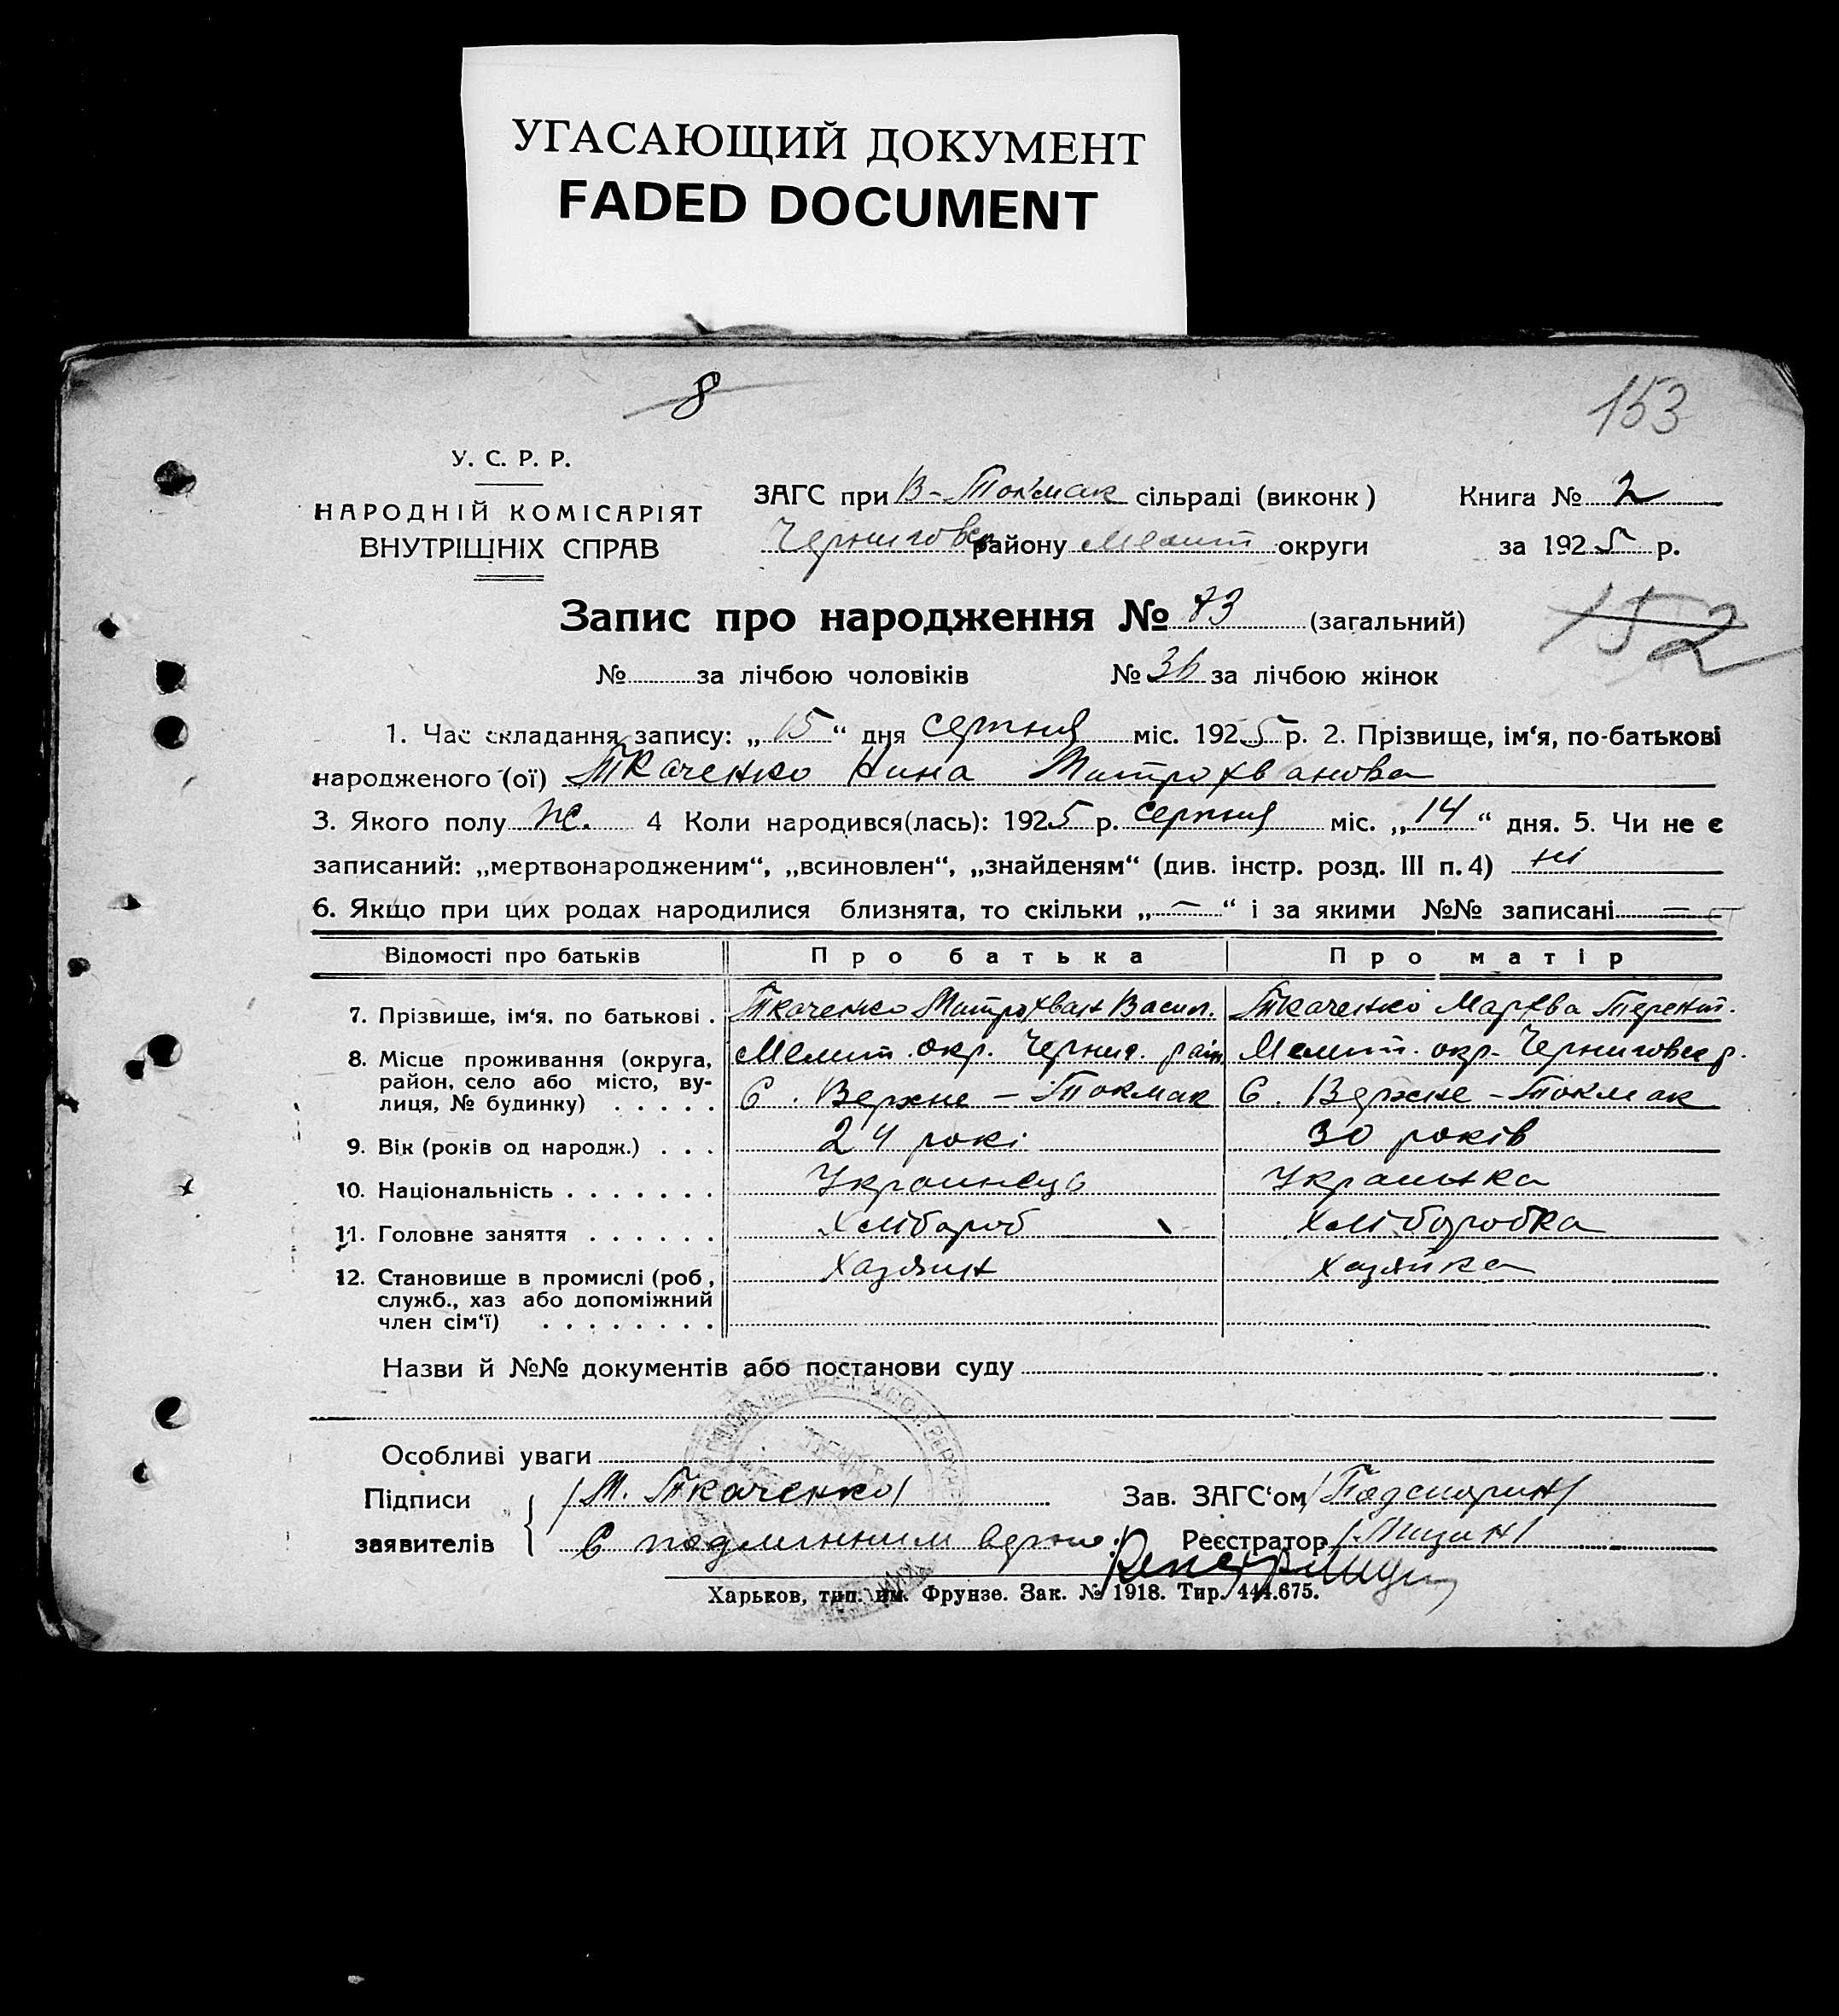 УГАСАЮЩИЙ ДОКУМЕНТ
FADED DOCUMENT
8
153
У. С. Р. Р.
НАРОДНІЙ КОМІСАРІЯТ
ВНУТРІШНІХ СПРАВ
ЗАГС при В-Токмак сільраді (виконк)
Черниговск району Мелит округи
Книга № 2
за 1925 р.
Запис про народження № 73 (загальний)
152
№ за лічбою чоловіків № 36 за лічбою жінок
1. Час складання запису: „15“ дня серпня міс. 1925 р. 2. Прізвище, ім‘я, по-батькові
народженого (ої) Ткаченко Нина Митрохванова
3. Якого полу ж. 4 Коли народився(лась): 1925 р. серпня міс. „14“ дня. 5. Чи не є
записаний: „мертвонародженим“, „всиновлен“, „знайденям“ (див. інстр. розд. III п. 4) ні
6. Якщо при цих родах народилися близнята, то скільки „—“ і за якими №№ записані —
Відомості про батьків Про батька Про матір
7. Прізвище, ім‘я, по батькові . Ткаченко Митрохван Васил. Ткаченко Мархва Терент.
8. Місце проживання (округа, Мелит. окр. Черниг. райн Мелит. окр. Черниговск р.
район, село або місто, ву-
лиця, № будинку) . . . . . С. Верхне-Токмак С. Верхне-Токмак
9. Вік (років од народж.) . . . 24 рокі 30 років
10. Національність . . . . . . . Украинець Украинка
11. Головне заняття . . . . . . Хлібороб Хліборобка
12. Становище в промислі (роб., Хазяин Хазяйка
служб., хаз або допоміжний
член сім‘ї) . . . . . . . .
Назви й №№ документів або постанови суду
Особливі уваги
Підписи /М. Ткаченко/ Зав. ЗАГС‘ом
заявителів С подлинним верно: Реєстратор
Харьков, тип. им. Фрунзе. Зак. № 1918. Тир. 444.675.